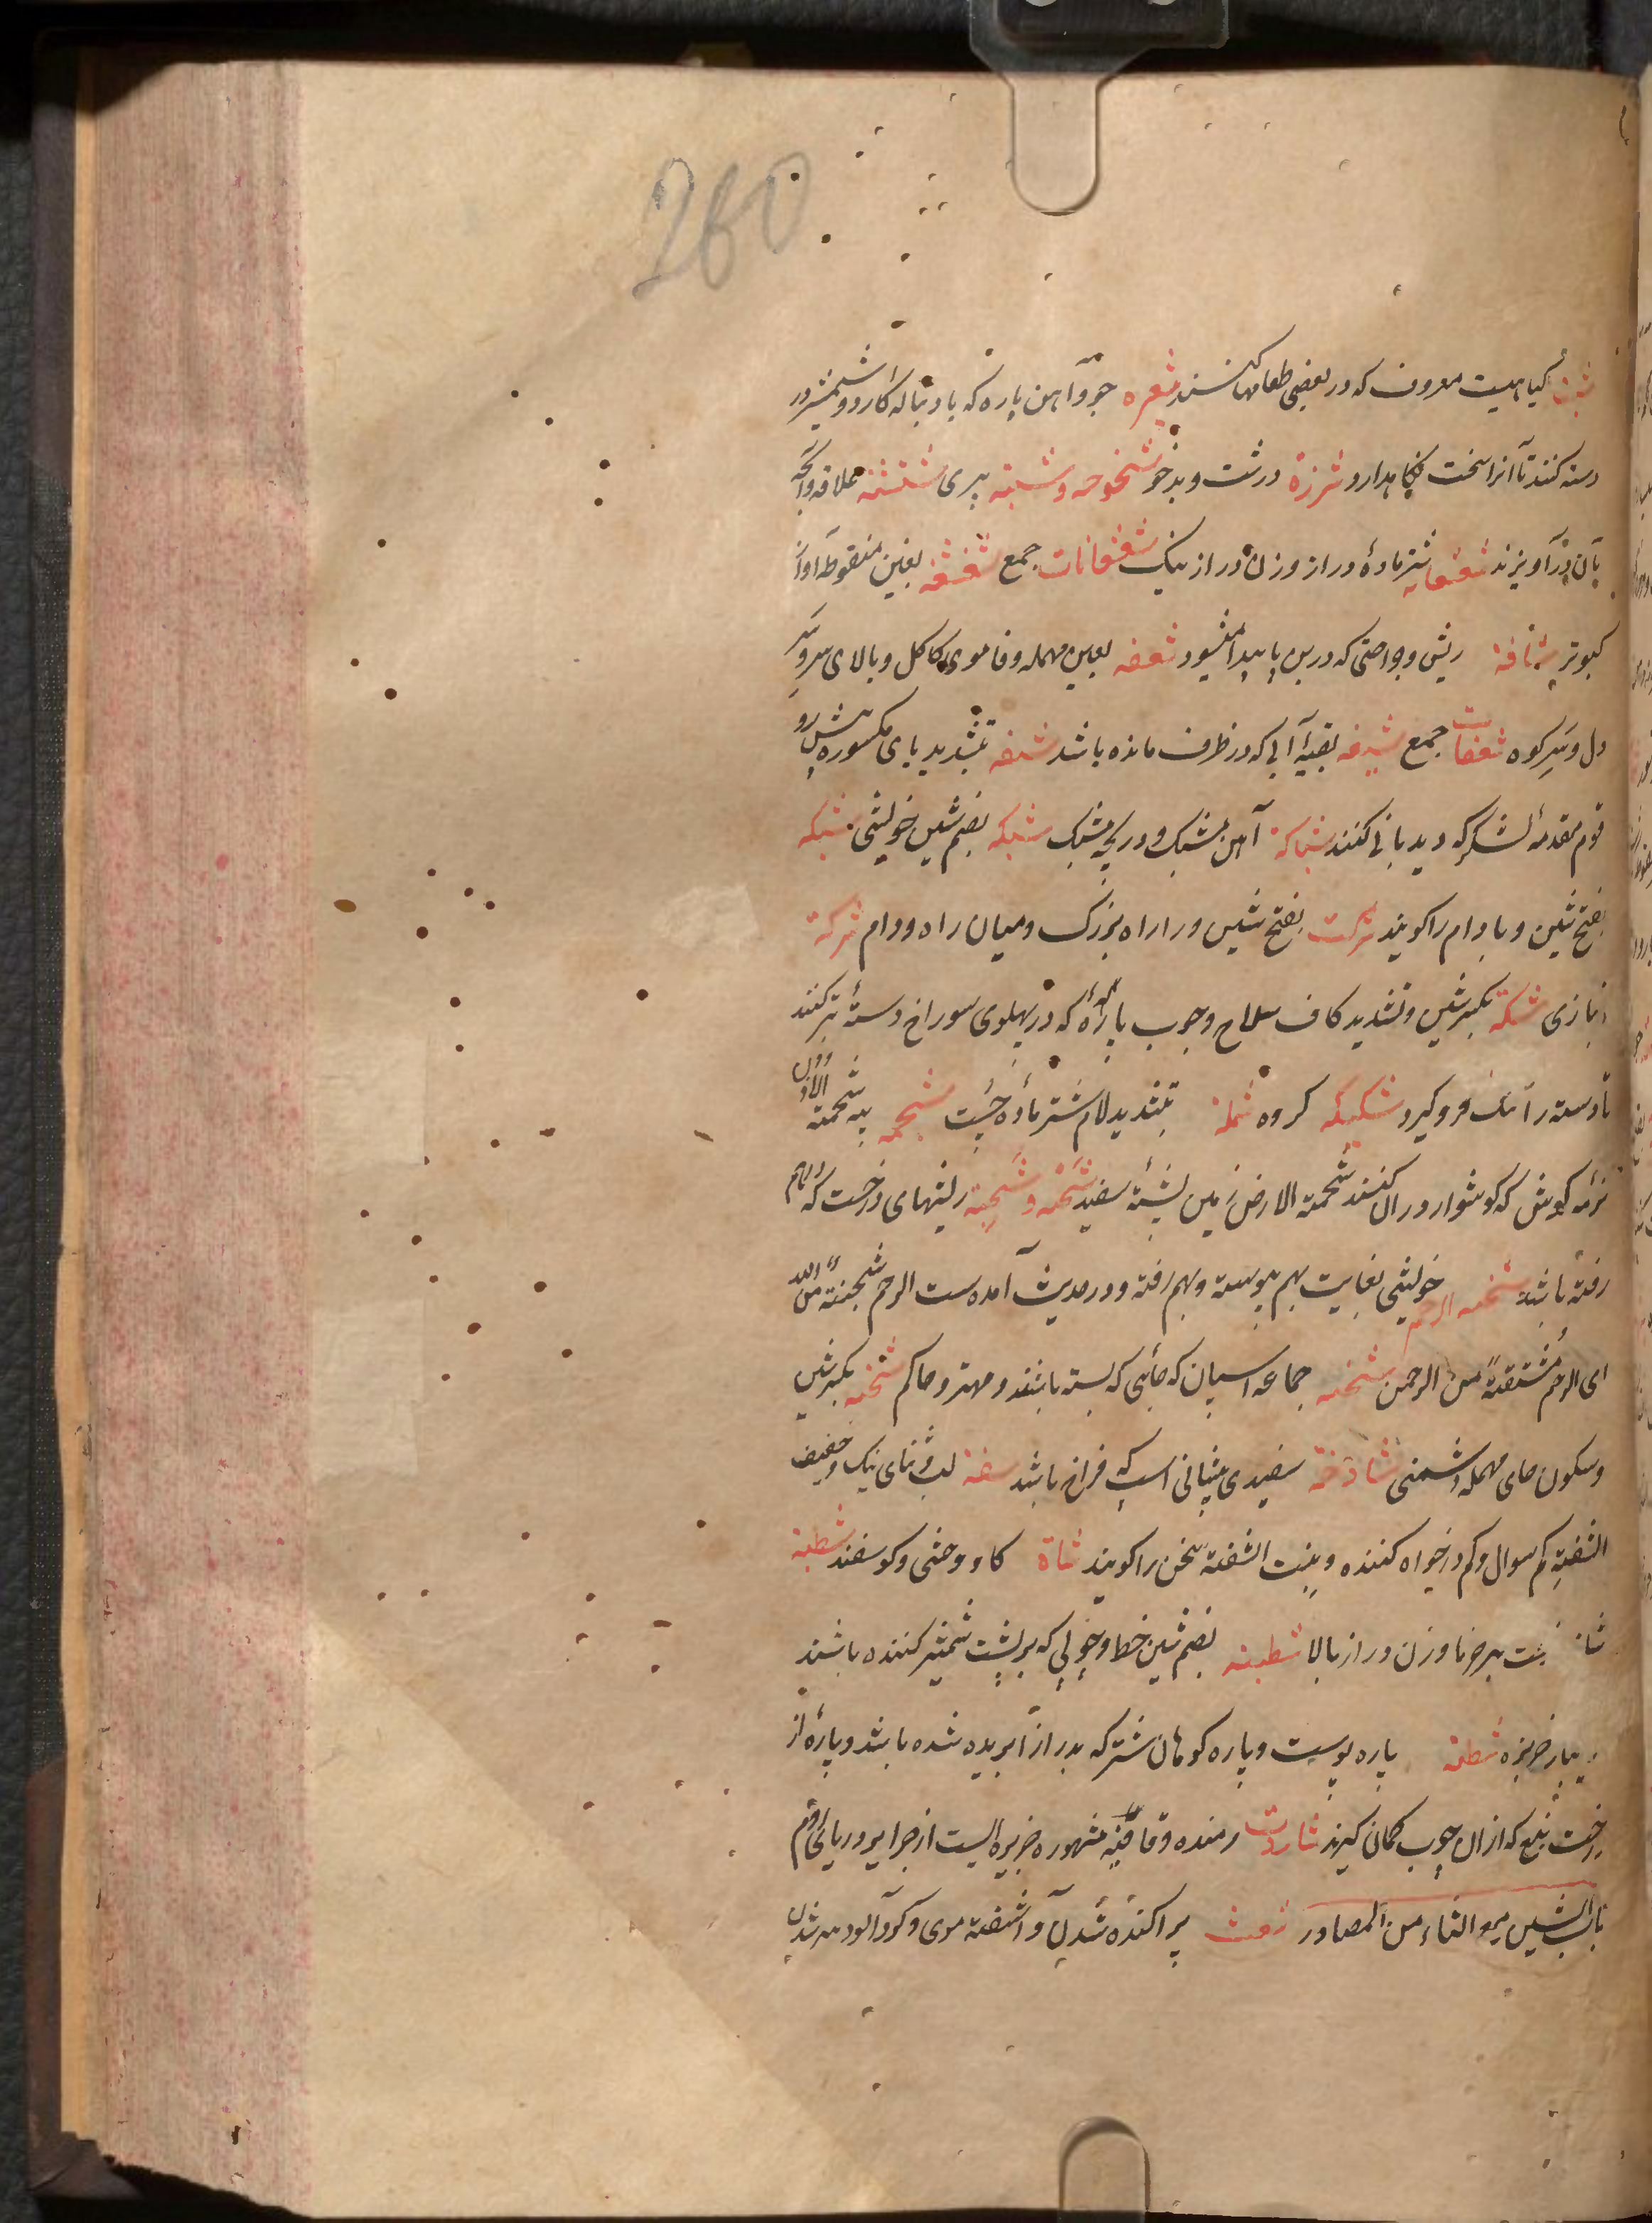 260
شبت گیاهیست معروف که در بعضی طعامها کنند شعیره جو و آهن پاره که با دنباله کارد و شمشیر در
دسته کنند تا آنرا سخت نگاهدارد شرزة درشت و بدخو شیخوخه و شیبه پیری شنشنه علاقه و آنچه
بآن درآویزند شعشعانه شتر مادۀ دراز و زن دراز نیک شعشعانات جمع شغشغه بغین منقوطه آواز
کبوتر شافة ریش و جراحتی که در بن پا پیدا میشود شعفه بعین مهمله و فا موی کاکل و بالای سر و سر
دل و سر کوه شعفات جمع بقیۀ آبی که در ظرف مانده باشد بتشدید یای مکسوره پیش رو
قوم مقدمۀ لشکر که دیدبانی کنند شباکة آهن مشبک و دریچۀ مشبک شبکه بضم شین خویشی شبکه
بفتح شین و با دام را گویند شرکت بفتح شین و را راه بزرگ و میان راه و دام شرکة
انبازی شکة بکسر شین و تشدید کاف سلاح و چوب پاره که در پهلوی سوراخ دستۀ تبر کنند
تا دسته را تنگ فرو گیرد شکیکه گروه شملة بتشدید لام شتر ماده چست شحمه پیه شحمة الاذن
نرمه گوش که گوشوار در آن کنند شحمة الارض زمین پشتۀ سفید شجنه و شجنة ریشهای درخت که بهم
رفته باشد شجنه الرحم خویشی بغایت بهم پیوسته و بهم رفته و در حدیث آمده‌ست الرحم شجنة من الله
ای الرحم مشتقة من الرحمن شحنه جماعه اسپان که جائی که بسته باشند و مهتر و حاکم شحنه بکسر شین
و سکون حای مهمله دشمنی شادخة سفیدی پیشانی اسپ که فراخ باشد شفة لب و ثنای نیک و خفیف
الشفة کم سوال و کم درخواه کننده و بنت الشفة سخن را گویند شاة گاو وحشی و گوسفند شطبة
شاخ و زن دراز بالا شطبة بضم شین خط و جوئی که بر پشت شمشیر کننده باشند
خربزه شطبه پاره پوست و پاره کوهان شتر که بدرازا بریده شده باشد و پارۀ از
درخت نبع که ازان چوب کمان گیرند شاردت رمنده و قافیه مشهوره جزیره ایست از جزایر دریای
باب الشین مع الثاء من المصادر شعث پراکنده شدن و آشفته موی و گرد آلوده شدن